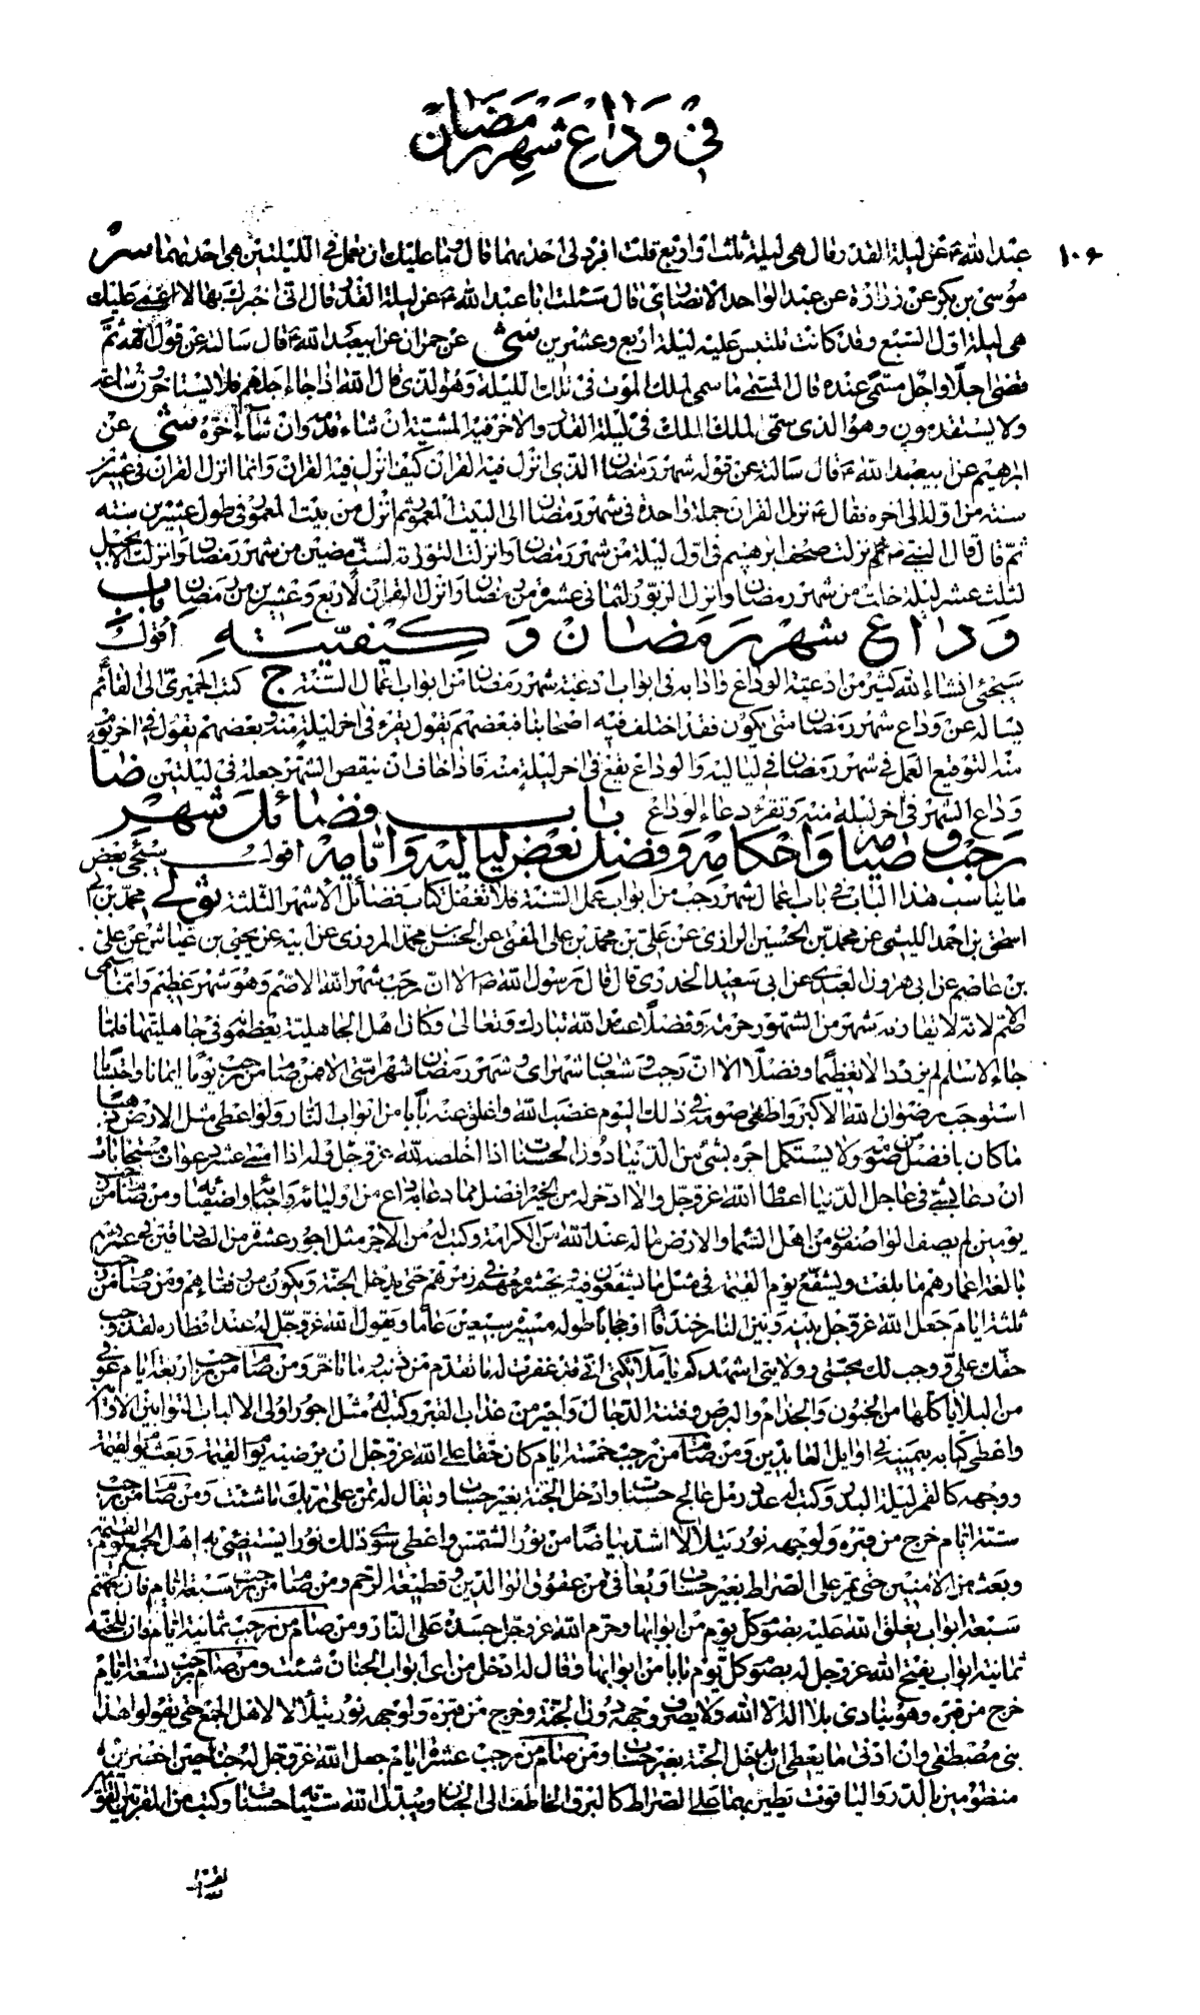 في وداع شهر رمضان
١٠٦
عبد الله ع عن ليلة القدر قال هي ليلة ثلث او اربع قلت افرد لي احدهما قال وما عليك ان تعمل في الليلتين هي احدهما سر
موسى بن بكر عن زرارة عن عبد الواحد الانصاري قال سئلت ابا عبد الله ع عن ليلة القدر قال اني اخبرك بها لا اعمى عليك
هي ليلة اول السبع وقد كانت تلتبس عليه ليلة اربع وعشرين شي عن حمران عن ابيعبد الله ع قال سالته عن قول الله ثم
قضى اجلا واجل مسمى عنده قال المسمى ما سمى لملك الموت في تلك الليلة وهو الذي قال الله اذا جاء اجلهم فلا يستاخرون ساعة
ولا يستقدمون وهو الذي سمى لملك الموت في ليلة القدر والاخر فيه المشية ان شاء قدمه وان شاء اخره شي عن
ابرهيم عن ابيعبد الله ع قال سالته عن قوله شهر رمضان الذي انزل فيه القران كيف انزل فيه القران وانما انزل القران في عشرين
سنة من اوله الى اخره فقال ع نزل القران جملة واحدة في شهر رمضان الى البيت المعمور ثم انزل من بيت المعمور في طول عشرين سنة
ثم قال قال النبي ص نزلت صحف ابرهيم في اول ليلة من شهر رمضان وانزلت التورية لست مضين من شهر رمضان وانزلت الانجيل
لثلث عشر ليلة خلت من شهر رمضان وانزل الزبور لثماني عشرة من رمضان وانزل القران لاربع وعشرين من رمضان باب
وداع شهر رمضان وكيفيته اقول
سيجئ انشاء الله كثير من ادعية الوداع وادابه في ابواب ادعية شهر رمضان من ابواب اعمال السنة ج كتب الحميري الى القائم
يساله عن وداع شهر رمضان متى يكون فقد اختلف فيه اصحابنا فبعضهم يقول يقرء في اخر ليلة منه وبعضهم يقول في اخر يوم
منه التوقيع العمل في شهر رمضان في لياليه والوداع يقع في اخر ليلة منه فاذا خاف ان ينقص الشهر جعله في ليلتين ضا
وداع الشهر في اخر ليلة منه وتقرء دعاء الوداع باب فضائل شهر
رجب وصيامه واحكامه وفضل بعض لياليه وايامه اقول سيجئ بعض
ما يناسب هذا الباب في باب اعمال شهر رجب من ابواب عمل السنة فلا تغفل كتاب فضائل الاشهر الثلثة ثو لي محمد بن
اسحق بن احمد الليثي عن محمد بن الحسين الرازي عن علي بن محمد بن علي المفتي عن الحسن بن محمد المروزي عن ابيه عن يحيى بن عياش عن علي
بن عاصم عن ابي هرون العبدي عن ابي سعيد الخدري قال قال رسول الله ص الا ان رجب شهر الله الاصم وهو شهر عظيم وانما سمي
الاصم لانه لا يقارنه شهر من الشهور حرمة وفضلا عند الله تبارك وتعالى وكان اهل الجاهلية يعظمونه في جاهليتها فلما
جاء الاسلام لم يزدد الا تعظيما وفضلا الا ان رجب وشعبان شهراي وشهر رمضان شهر امتي الا فمن صام من رجب يوما ايمانا واحتسابا
استوجب رضوان الله الاكبر واطفى صومه في ذلك اليوم غضب الله واغلق عنه بابا من ابواب النار ولو اعطى مثل الارض ذهبا
ما كان بافضل من صومه ولا يستكمل اجره بشئ من الدنيا دون الحسنات اذا اخلصه لله عز وجل وله اذا امسى عشر دعوات مستجابات
ان دعا بشئ في عاجل الدنيا اعطاه الله عز وجل والا ادخر له من الخير افضل مما دعا به داع من اوليائه واحبائه واصفيائه ومن صام من رجب
يومين لم يصف الواصفون من اهل السماء والارض ما له عند الله من الكرامة وكتب له من الاجر مثل اجور عشرة من الصادقين في عمرهم
بالغة اعمارهم ما بلغت ويشفع يوم القيمة في مثل ما يشفعون فيه ويحشره معهم في زمرتهم حتى يدخل الجنة ويكون من رفقائهم ومن صام من رجب
ثلثة ايام جعل الله عز وجل بينه وبين النار خندقا او حجابا طوله مسيرة سبعين عاما ويقول الله عز وجل له عند افطاره لقد وجب
حقك علي ووجب لك محبتي وولايتي اشهدكم يا ملائكتي اني قد غفرت له ما تقدم من ذنبه وما تاخر ومن صام من رجب اربعة ايام عوفي
من البلايا كلها من الجنون والجذام والبرص وفتنة الدجال واجير من عذاب القبر وكتب له مثل اجور اولي الالباب التوابين الاوابين
واعطي كتابه بيمينه في اوايل العابدين ومن صام من رجب خمسة ايام كان حقا على الله عز وجل ان يرضيه يوم القيمة وبعث يوم القيمة
ووجهه كالقمر ليلة البدر وكتب له عدد رمل عالج حسنات وادخل الجنة بغير حساب ويقال له تمن على ربك ما شئت ومن صام من رجب
ستة ايام خرج من قبره ولوجهه نور يتلالا اشد بياضا من نور الشمس واعطي سوى ذلك نورا يستضئ به اهل الجمع يوم القيمة
وبعث من الامنين حتى يمر على الصراط بغير حساب ويعافى من عقوق الوالدين وقطيعة الرحم ومن صام من رجب سبعة ايام فان لجهنم
سبعة ابواب يغلق الله عليه بصوم كل يوم بابا من ابوابها وحرم الله عز وجل جسده على النار ومن صام من رجب ثمانية ايام فان للجنة
ثمانية ابواب يفتح الله عز وجل له بصوم كل يوم بابا من ابوابها وقال له ادخل من اي ابواب الجنان شئت ومن صام من رجب تسعة ايام
خرج من قبره وهو ينادي بلا اله الا الله ولا يصرف وجهه دون الجنة وخرج من قبره ولوجهه نور يتلالا لاهل الجمع حتى يقولوا هذا
نبي مصطفى وان ادنى ما يعطى ان يدخل الجنة بغير حساب ومن صام من رجب عشرة ايام جعل الله عز وجل له جناحين اخضرين
منظومين بالدر والياقوت يطير بهما على الصراط كالبرق الخاطف الى الجنان ويبدل الله سيئاته حسنات وكتب من المقربين القوامين